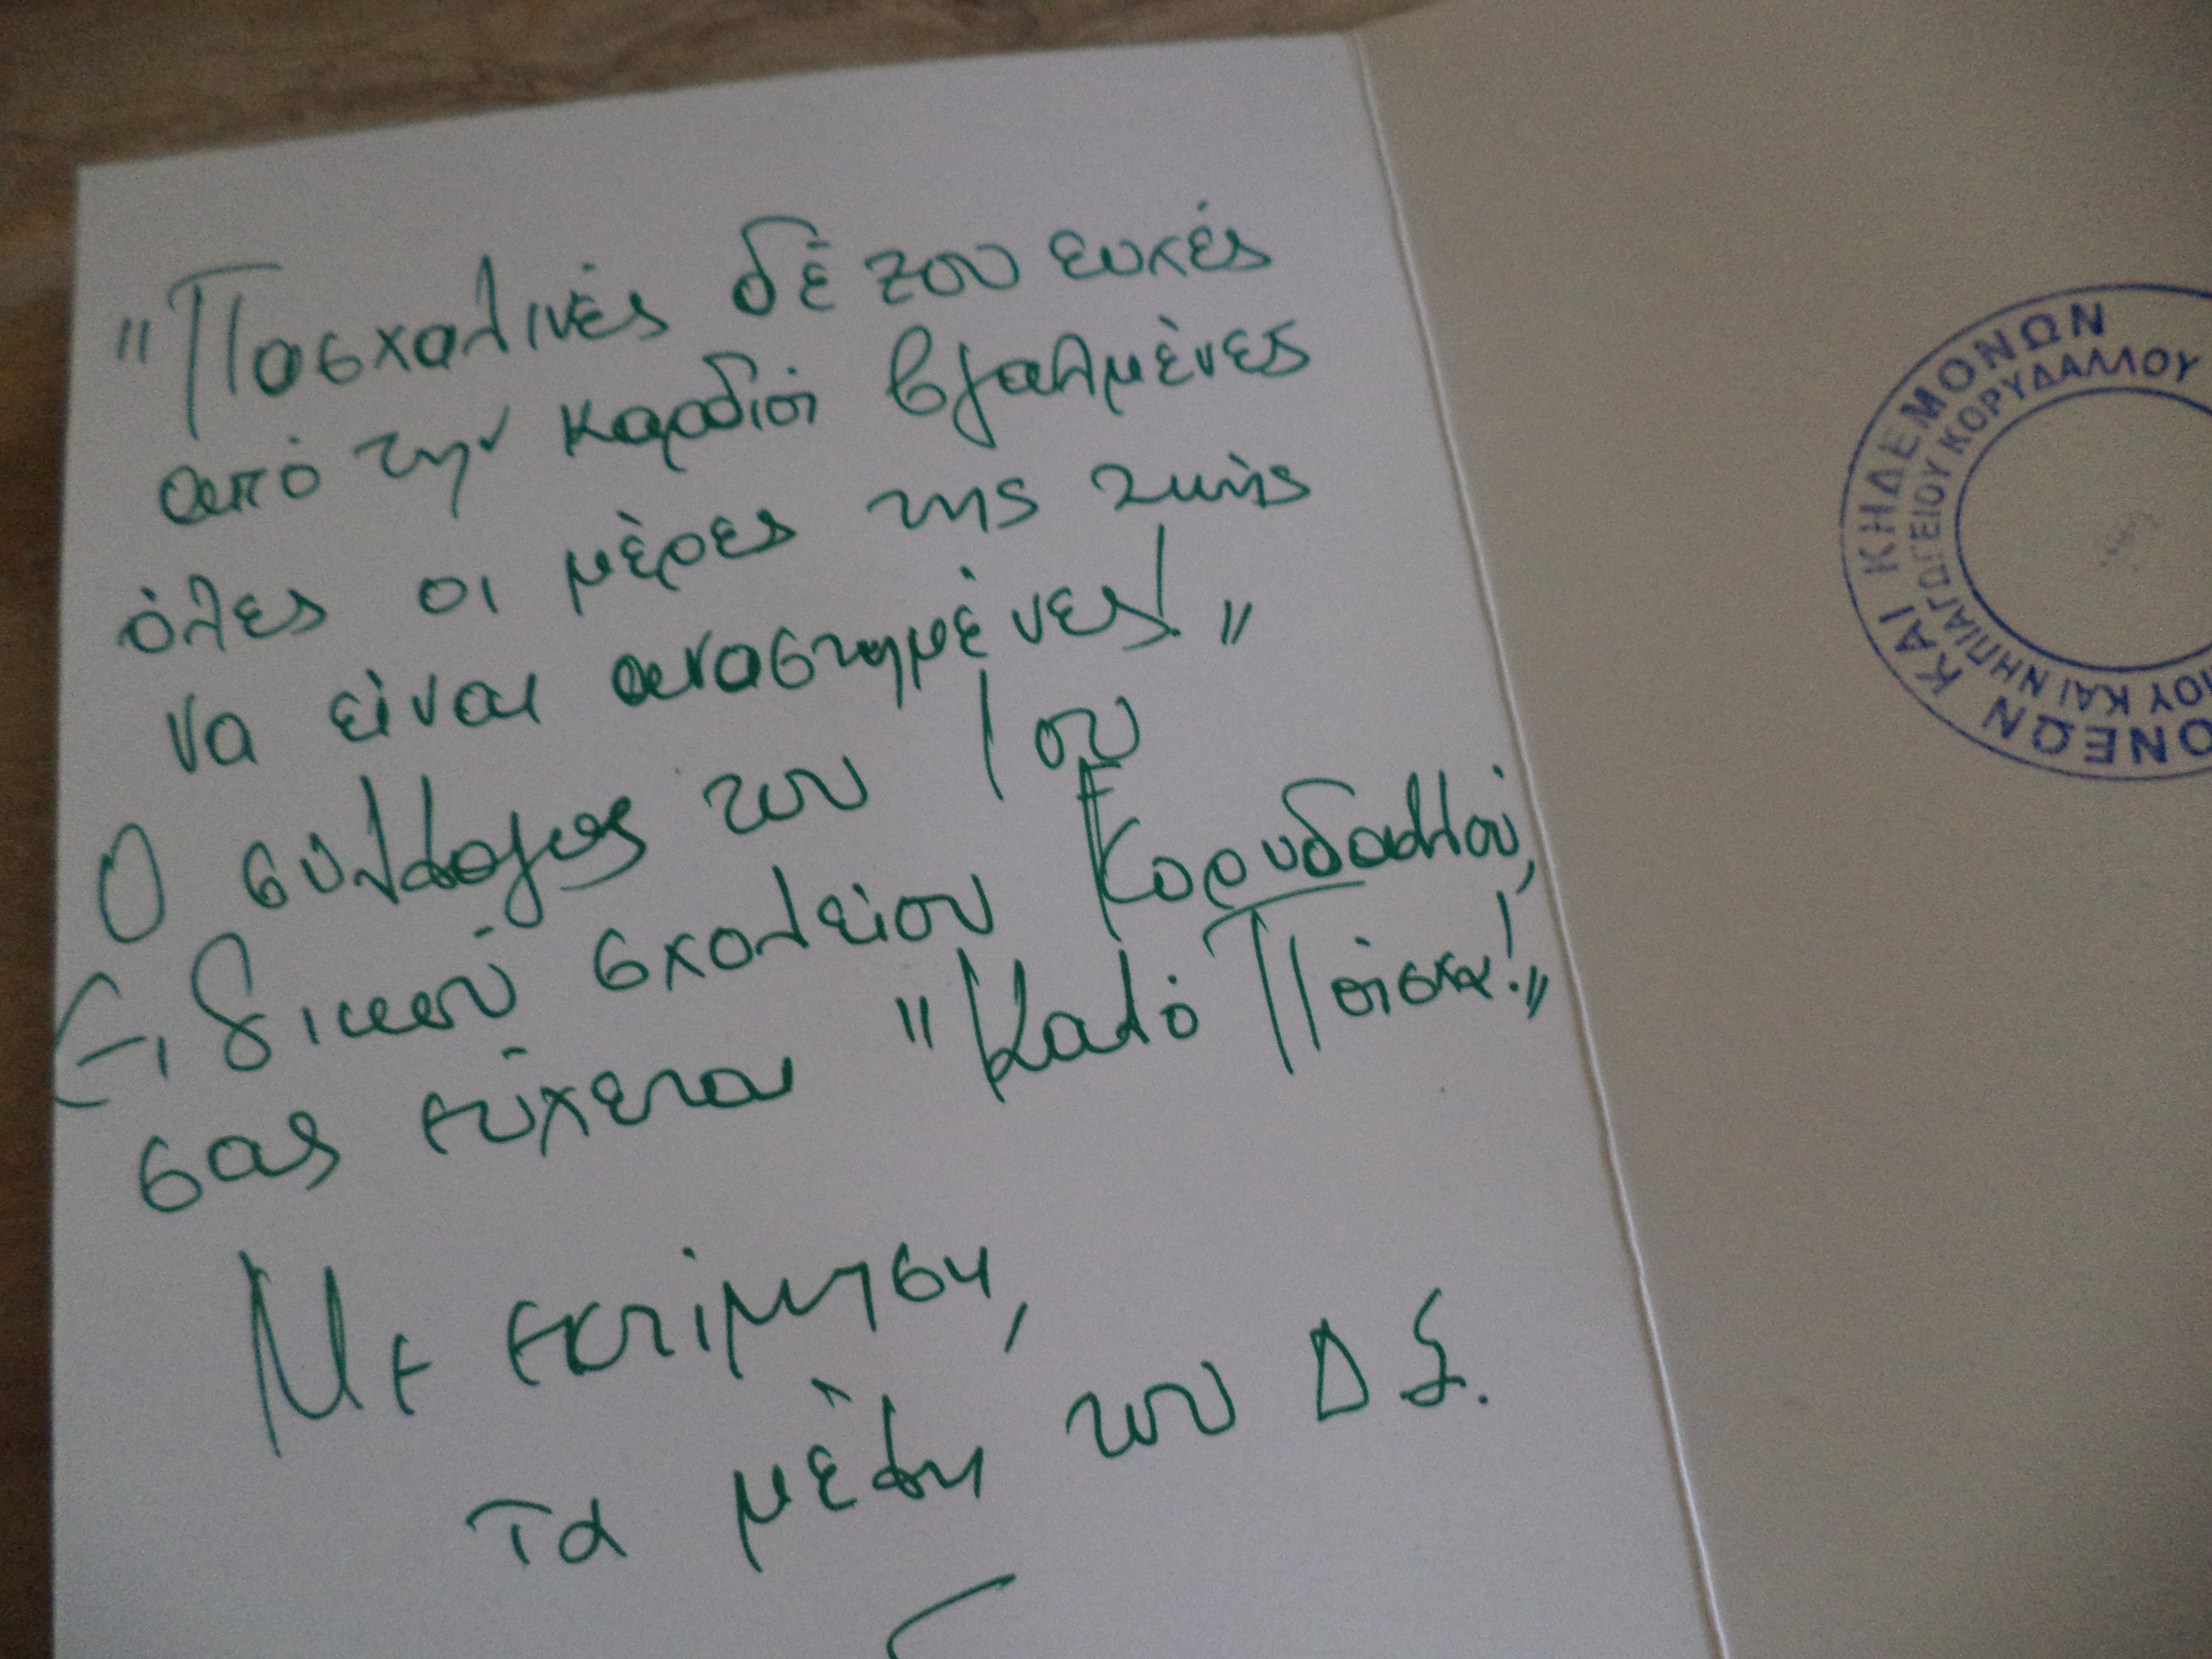 "Πασχαλινές δέ του ευχές
από την καρδιά βγαλμένες
όλες οι μέρες της ζωής
να είναι αναστημένες!"
Ο σύλλογος του 1ου
Ειδικού σχολείου Κορυδαλλού,
σας εύχεται "Καλό Πάσχα!"
Με εκτίμηση,
Τα μέλη του Δ Σ.
ΟΝΕΩΝ ΚΑΙ ΚΗΔΕΜΟΝΩΝ
ΙΟΥ ΚΑΙ ΝΗΠΙΑΓΩΓΕΙΟΥ ΚΟΡΥΔΑΛΛΟΥ